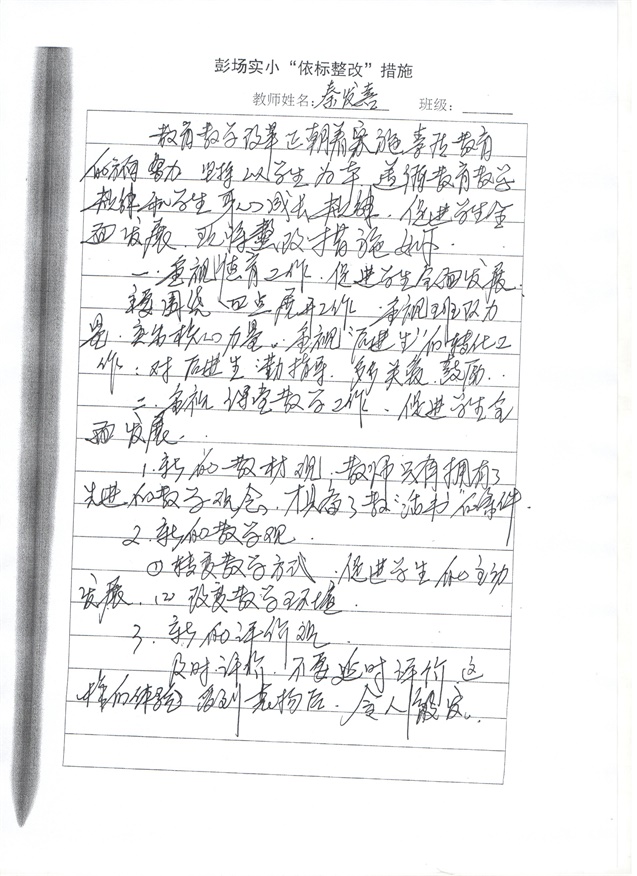 彭场实小“依标整改”措施
教师姓名:秦发喜 班级:
教育教学改革正朝着实施素质教育
的方向努力 坚持以学生为本 遵循教育教学
规律和学生身心成长规律 促进学生全
面发展 现将整改措施如下
一、重视德育工作 促进学生全面发展
主要围绕 四点展开工作 重视班队力
量 突出核心力量 重视“后进生”的转化工
作 对后进生 勤指导 多关爱 鼓励
二、重视课堂教学工作 促进学生全
面发展
1.新的教材观 教师只有拥有了
先进的教学观念 才具备了教“活书”的条件
2.新的教学观
(1)转变教学方式 促进学生的主动
发展 (2)改变教学环境
3.新的评价观
及时评价 不要延时评价 这
样的体验 受到 后 令人